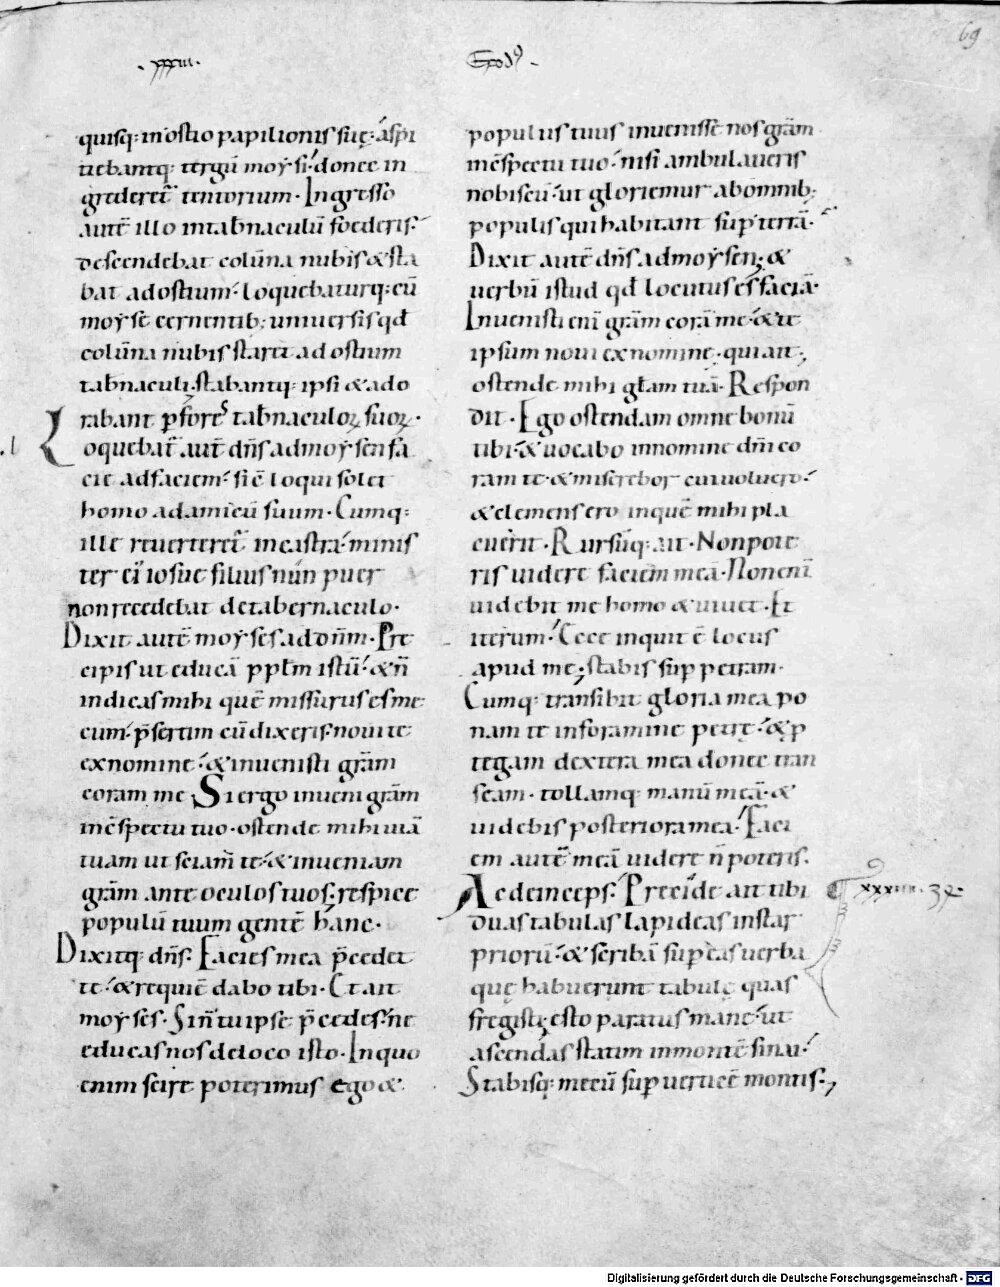 69
.xxxiii.
Exod⁹.
quisq: in ostio papilionis suę. aspi
tiebantq: tergū moysi. donec in
grederet̄ tentorium. Ingresso
autē illo intab̄naculū foederis.
descendebat colūna nubis & sta
bat ad ostium. loquebaturq: cū
moyse cernentib; universis qđ
colūna nubis staret ad ostium
tab̄naculi. stabantq: ipsi & ado
rabant p̄ fores tab̄naculoꝝ suoꝝ.
.l Loquebat̄ aut̄ dn̄s ad moysen fa
cie ad faciem. sic̄ loqui solet
homo ad amicū suum. Cumq:
ille reverteret̄ in castra. minis
ter ei iosue filius nun puer
non recedebat de tabernaculo.
Dixit autē moyses ad dn̄m. Pre
cipis ut educā pplm istū. & n̄
indicas mihi quē missurus es me
cum. p̄sertim cū dixeris. novi te
ex nomine. & invenisti grām
coram me. Si ergo inveni grām
in c̄spectu tuo. ostende mihi viā
tuam ut sciam te. & inveniam
grām ante oculos tuos. respice
populū tuum gentē hanc.
Dixitq: dn̄s. Facies mea p̄cedet
te. & requiē dabo tibi. Et ait
moyses. Si n̄ tu ipse p̄cedes. ne
educas nos de loco isto. In quo
enim scire poterimus ego &
populus tuus invenisse nos grām
in c̄spectu tuo. nisi ambulaveris
nobiscū. ut gloriemur ab omnib;
populis qui habitant sup terrā.
Dixit autē dn̄s ad moysen; &
verbū istud qđ locutus es faciā.
Invenisti enī grām corā me. & te
ipsum novi ex nomine. qui ait;
ostende mihi glam tuā. Respon
dit. Ego ostendam omne bonū
tibi. & vocabo in nomine dn̄i co
ram te. & miserebor cui voluero.
& clemens ero in quē mihi pla
cuerit. Rursūq: ait. Non pote
ris videre faciem meā. Non enī
videbit me homo & vivet. Et
iterum. Ecce inquit ē locus
apud me; stabis sup petram.
Cumq: transibit gloria mea po
nam te in foramine petrę. & p
tegam dextera mea donec tran
seam. tollamq: manū meā. &
videbis posteriora mea. Faci
em autē meā videre n̄ poteris.
Ac deinceps. Precide ait tibi
xxxiiii. 34.
duas tabulas lapideas instar
priorū. & scribā sup eas verba
quę habuerunt tabulę quas
fregisti; esto paratus mane. ut
ascendas statim in montē sinai.
Stabisq: mecū sup verticē montis.
Digitalisierung gefördert durch die Deutsche Forschungsgemeinschaft - DFG